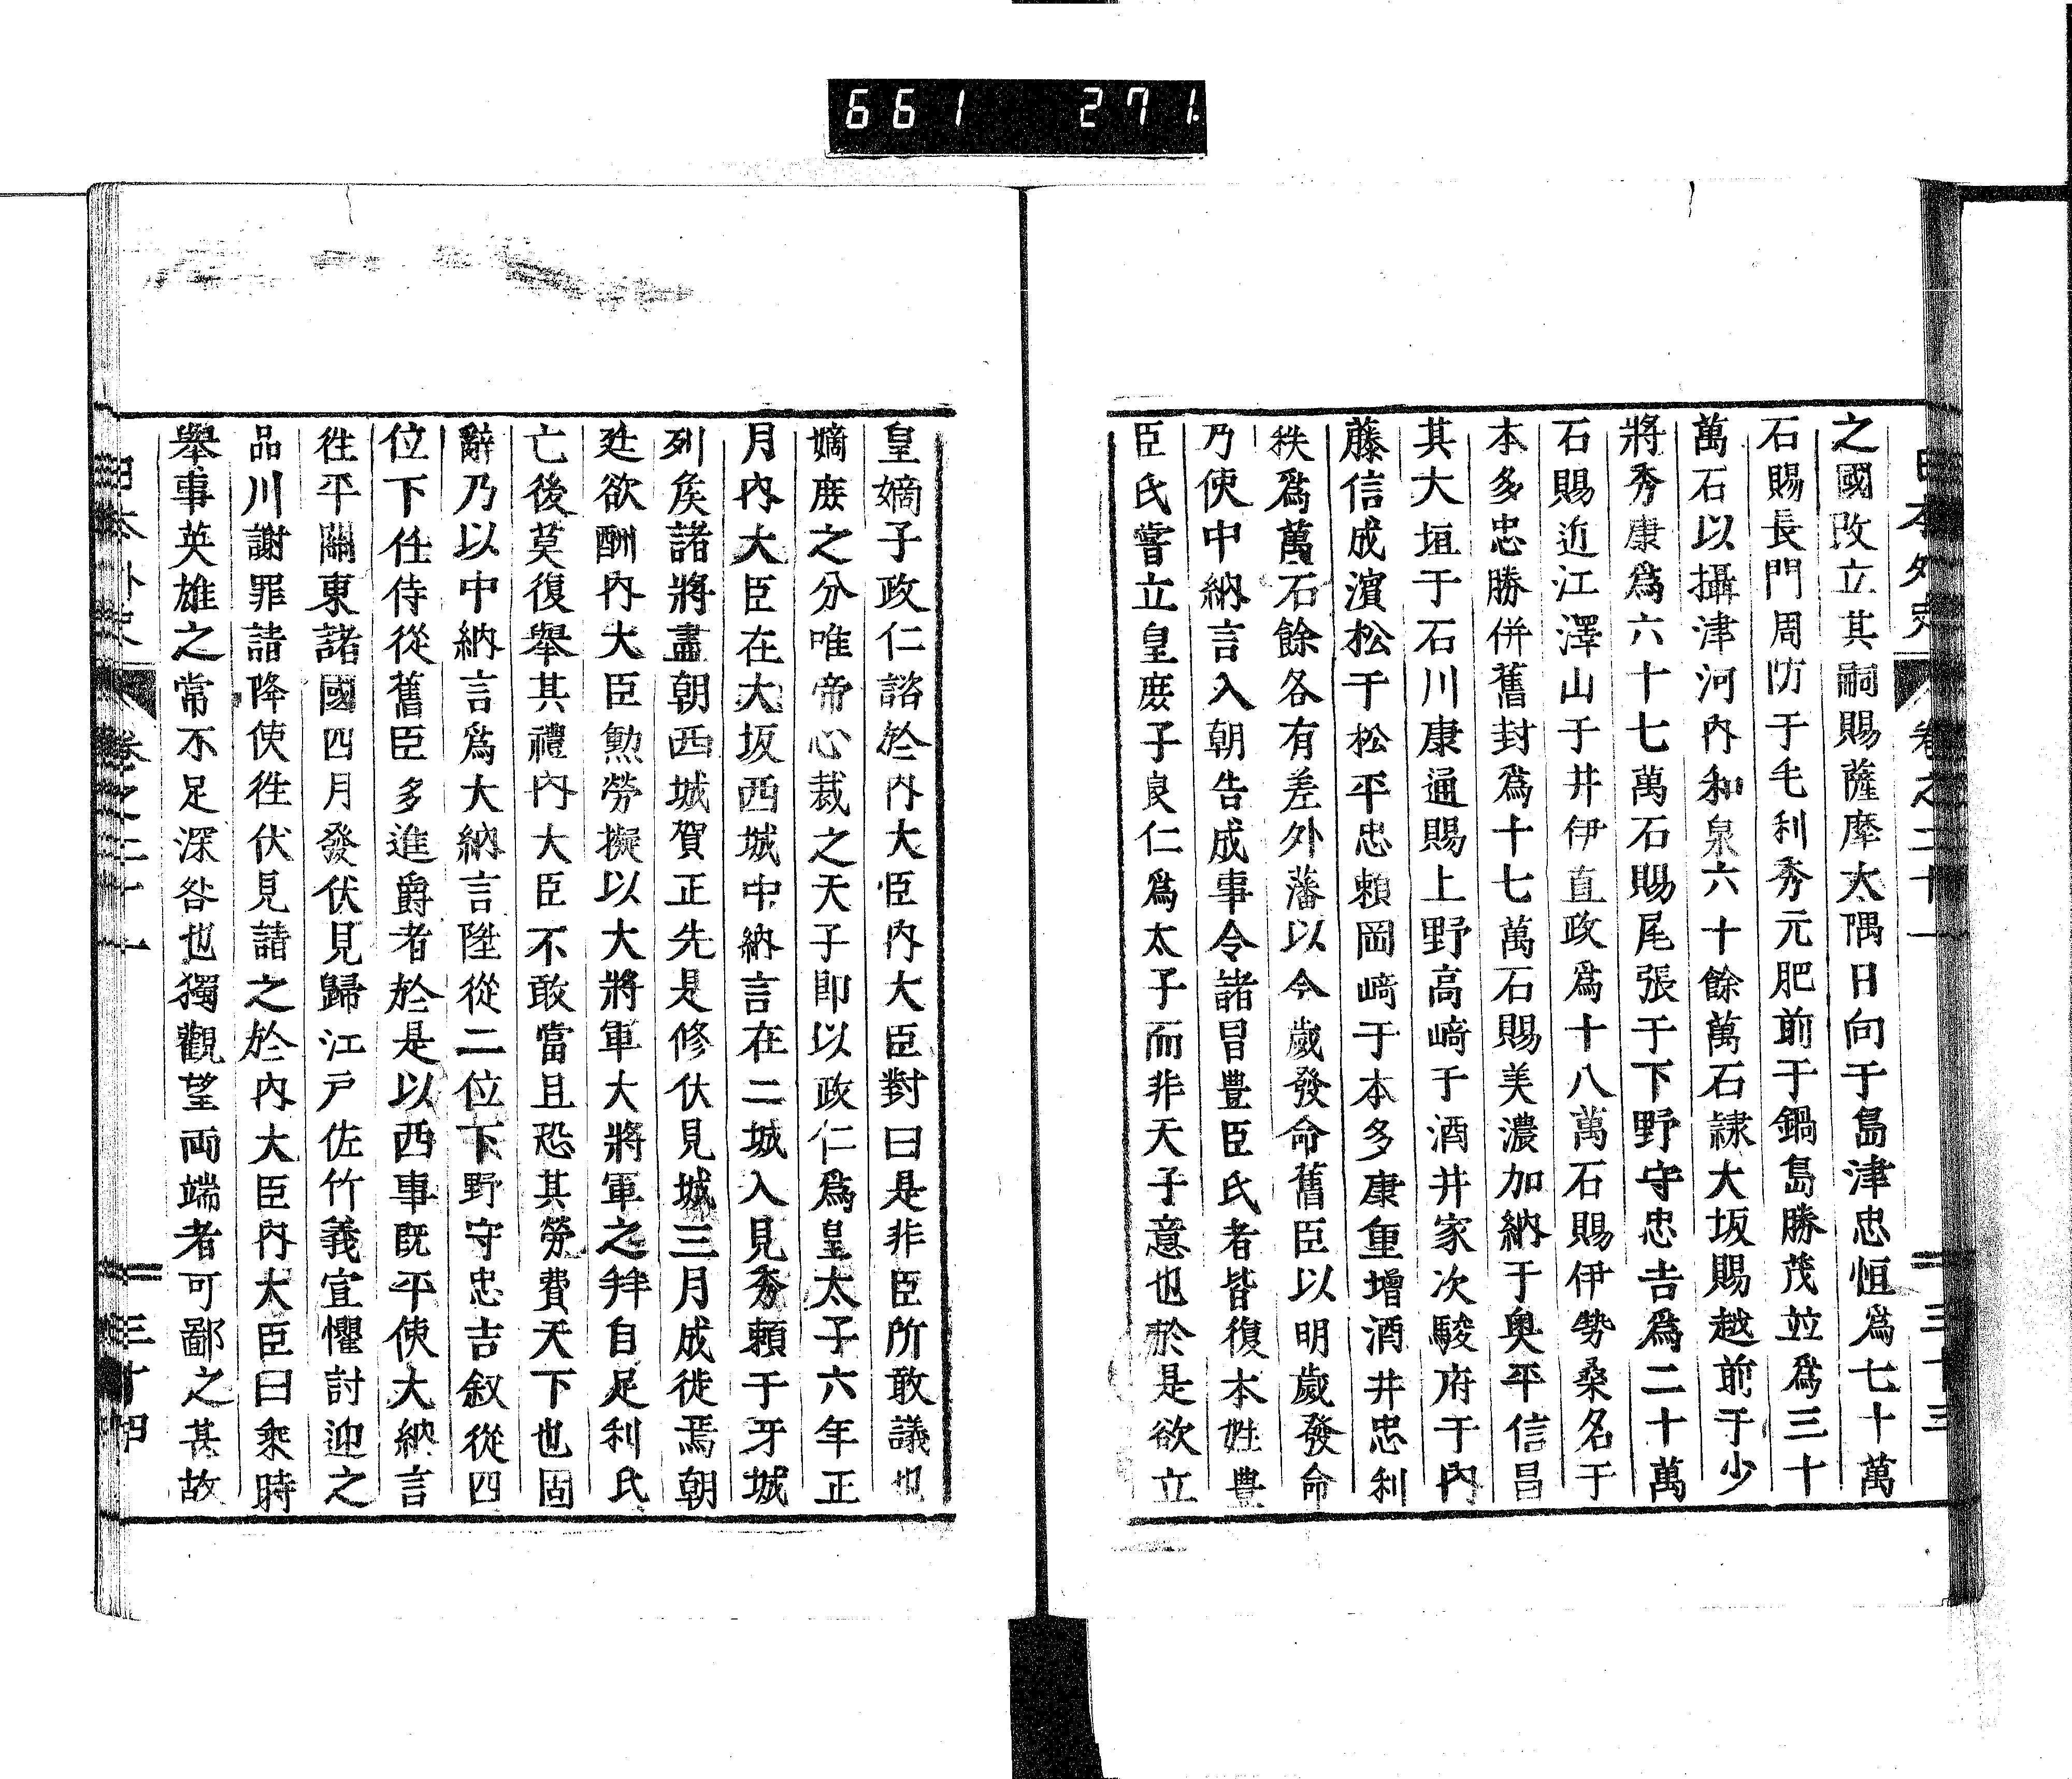 661 271
日本外史 卷之二十一 三十三
之國改立其嗣賜薩摩大隅日向于島津忠恒爲七十萬
石賜長門周防于毛利秀元肥前于鍋島勝茂並爲三十
萬石以攝津河內和泉六十餘萬石隷大坂賜越前于少
將秀康爲六十七萬石賜尾張于下野守忠吉爲二十萬
石賜近江澤山于井伊直政爲十八萬石賜伊勢桑名于
本多忠勝併舊封爲十七萬石賜美濃加納于奧平信昌
其大垣于石川康通賜上野高﨑于酒井家次駿府于內
藤信成濵松于松平忠賴岡﨑于本多康重增酒井忠利
秩爲萬石餘各有差外藩以今歲發命舊臣以明歲發命
乃使中納言入朝告成事令諸冒豊臣氏者皆復本姓豊
臣氏嘗立皇庶子良仁爲太子而非天子意也於是欲立
皇嫡子政仁諮於內大臣內大臣對曰是非臣所敢議也
嫡庶之分唯帝心裁之天子卽以政仁爲皇太子六年正
月內大臣在大坂西城中納言在二城入見秀賴于牙城
列矦諸將盡朝西城賀正先是修伏見城三月成徙焉朝
廷欲酬內大臣勲勞擬以大將軍大將軍之拜自足利氏
亡後莫復舉其禮內大臣不敢當且恐其勞費天下也固
辭乃以中納言爲大納言陞從二位下野守忠吉叙從四
位下任侍從舊臣多進爵者於是以西事既平使大納言
徃平關東諸國四月發伏見歸江戸佐竹義宣懼討迎之
品川謝罪請降使徃伏見請之於內大臣內大臣曰乘時
舉事英雄之常不足深咎也獨觀望両端者可鄙之甚故
日本外史 卷之二十一 三十四